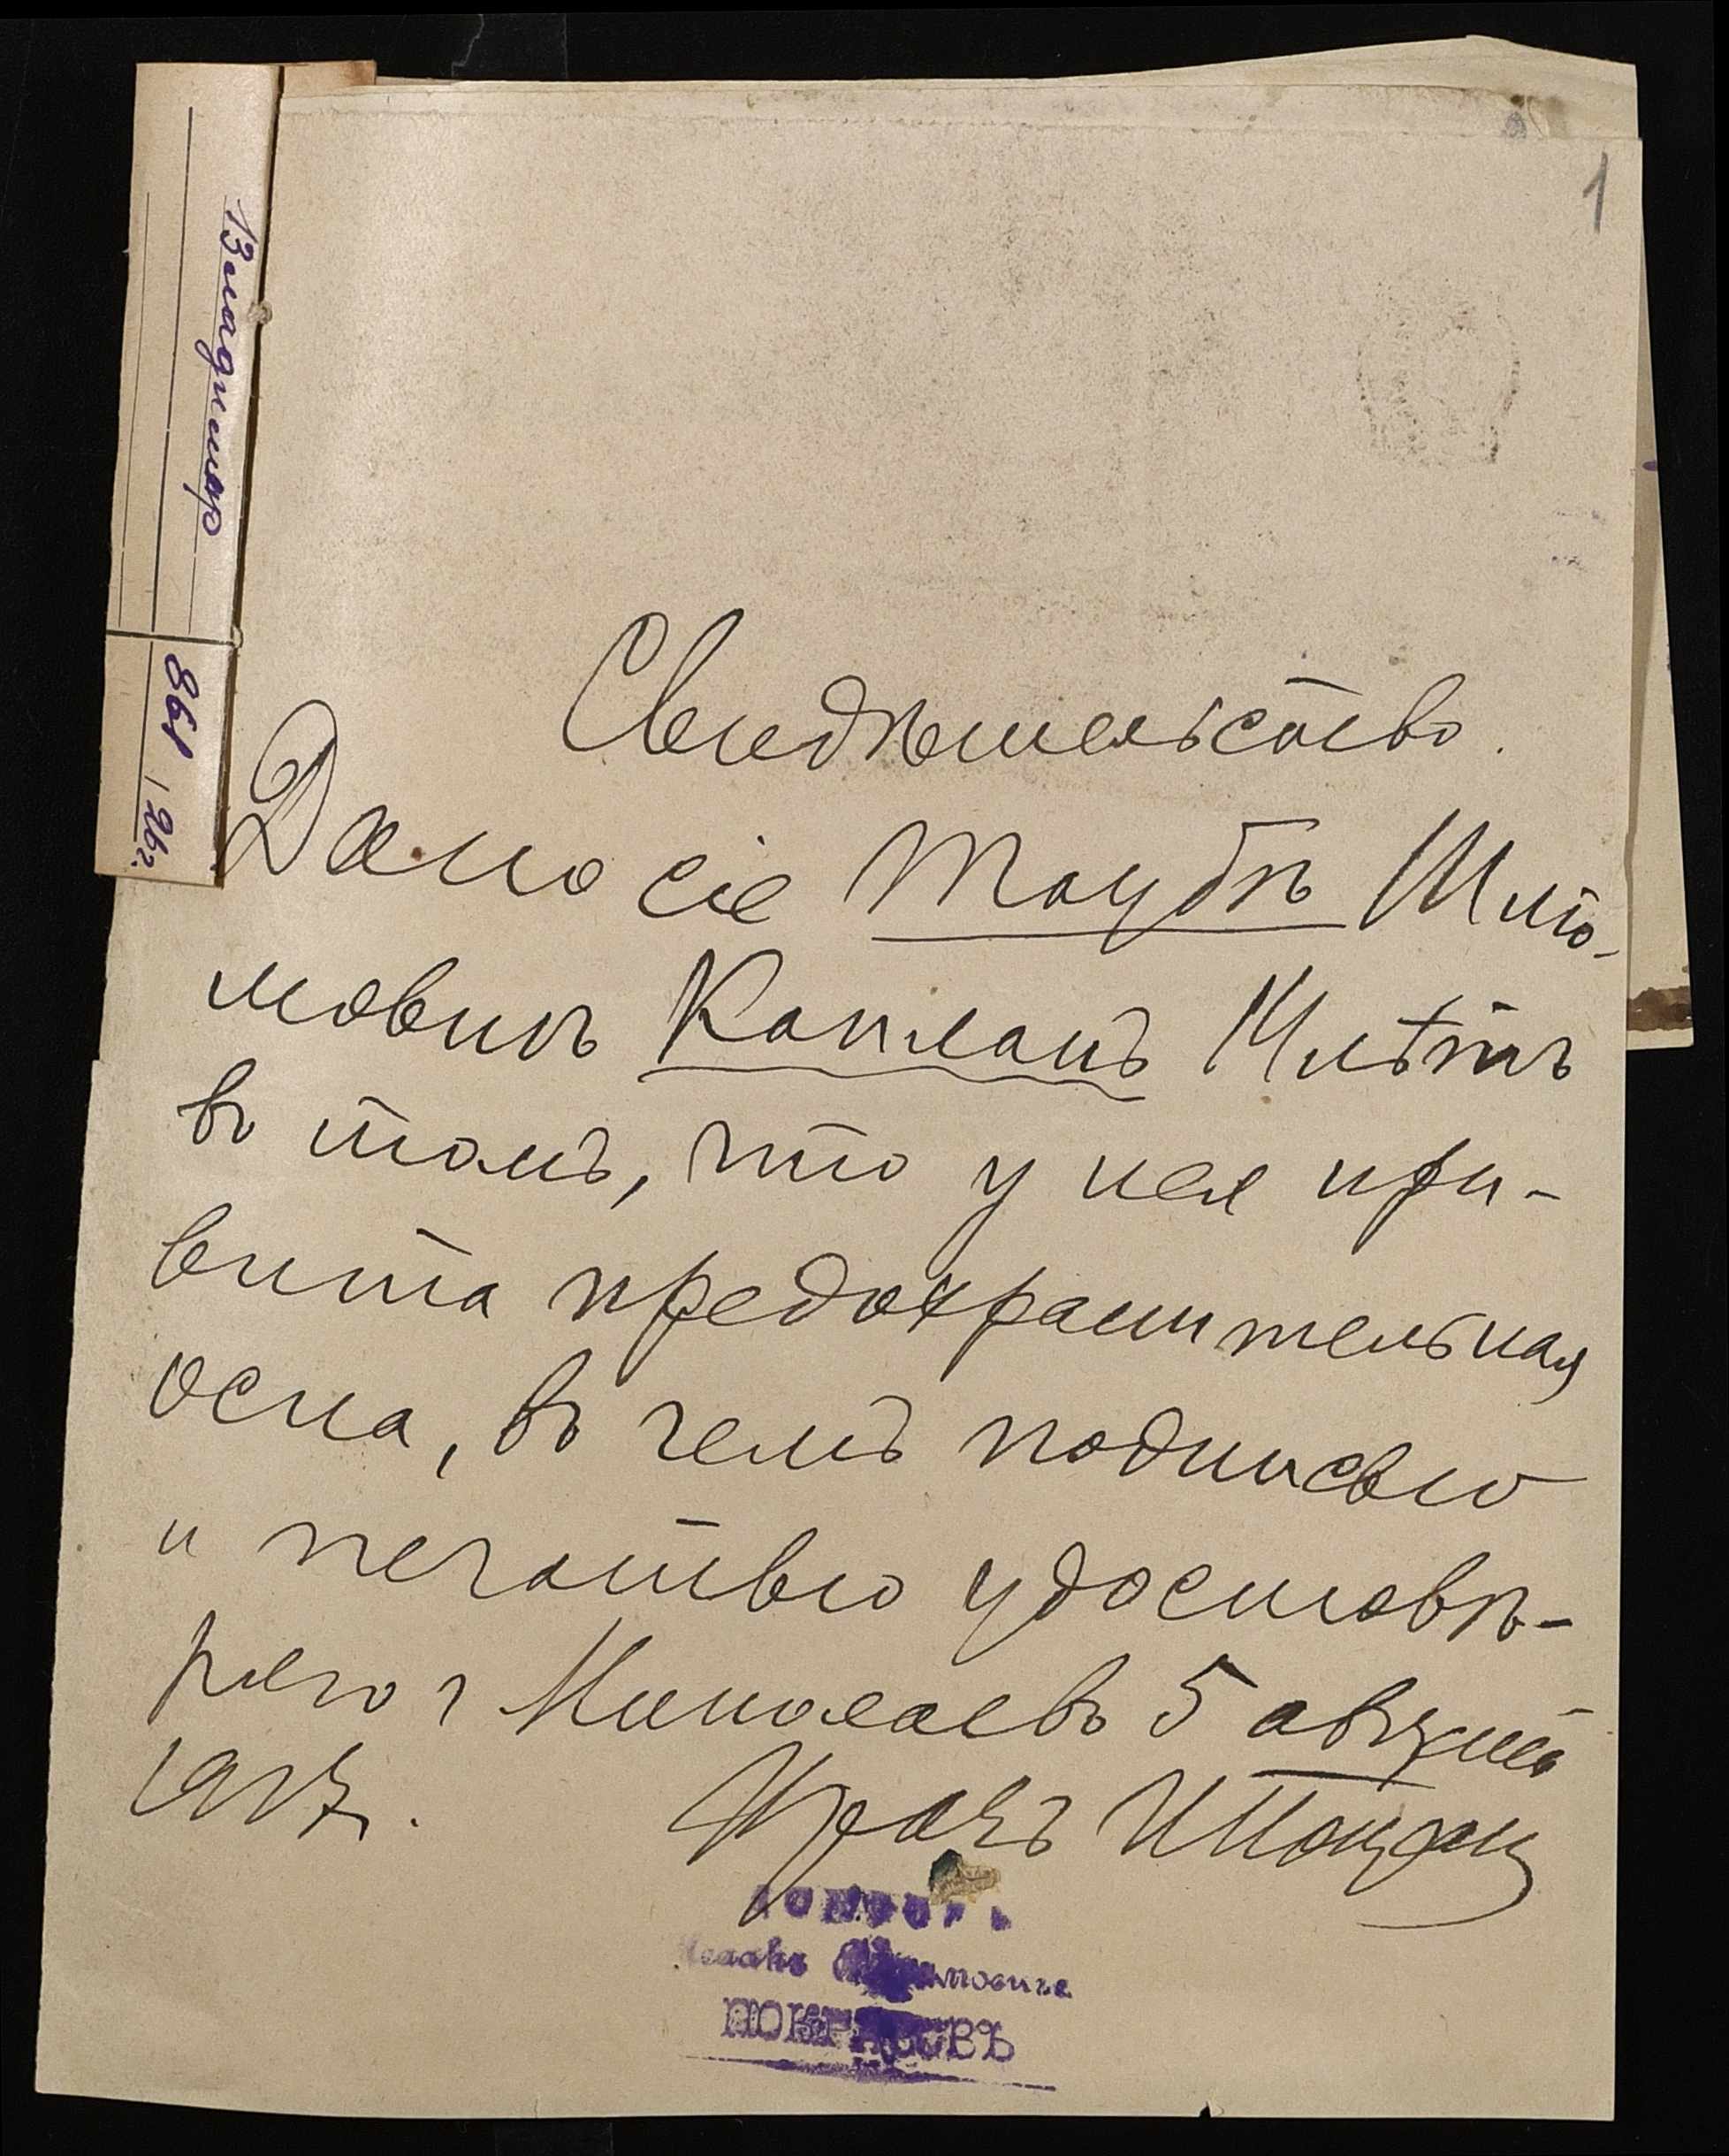 1
Владимир
861 / 26 г.
Свидѣтельство.
Дано сіе Таубѣ Шло-
мовнѣ Капланъ
въ томъ, что у нея при-
вита предохранительная
оспа, въ чемъ подписью
и печатью удостовѣ-
ряю г Николаевъ 5 августа
1917.
Врачъ
ДОКТОРЪ
Исаакъ